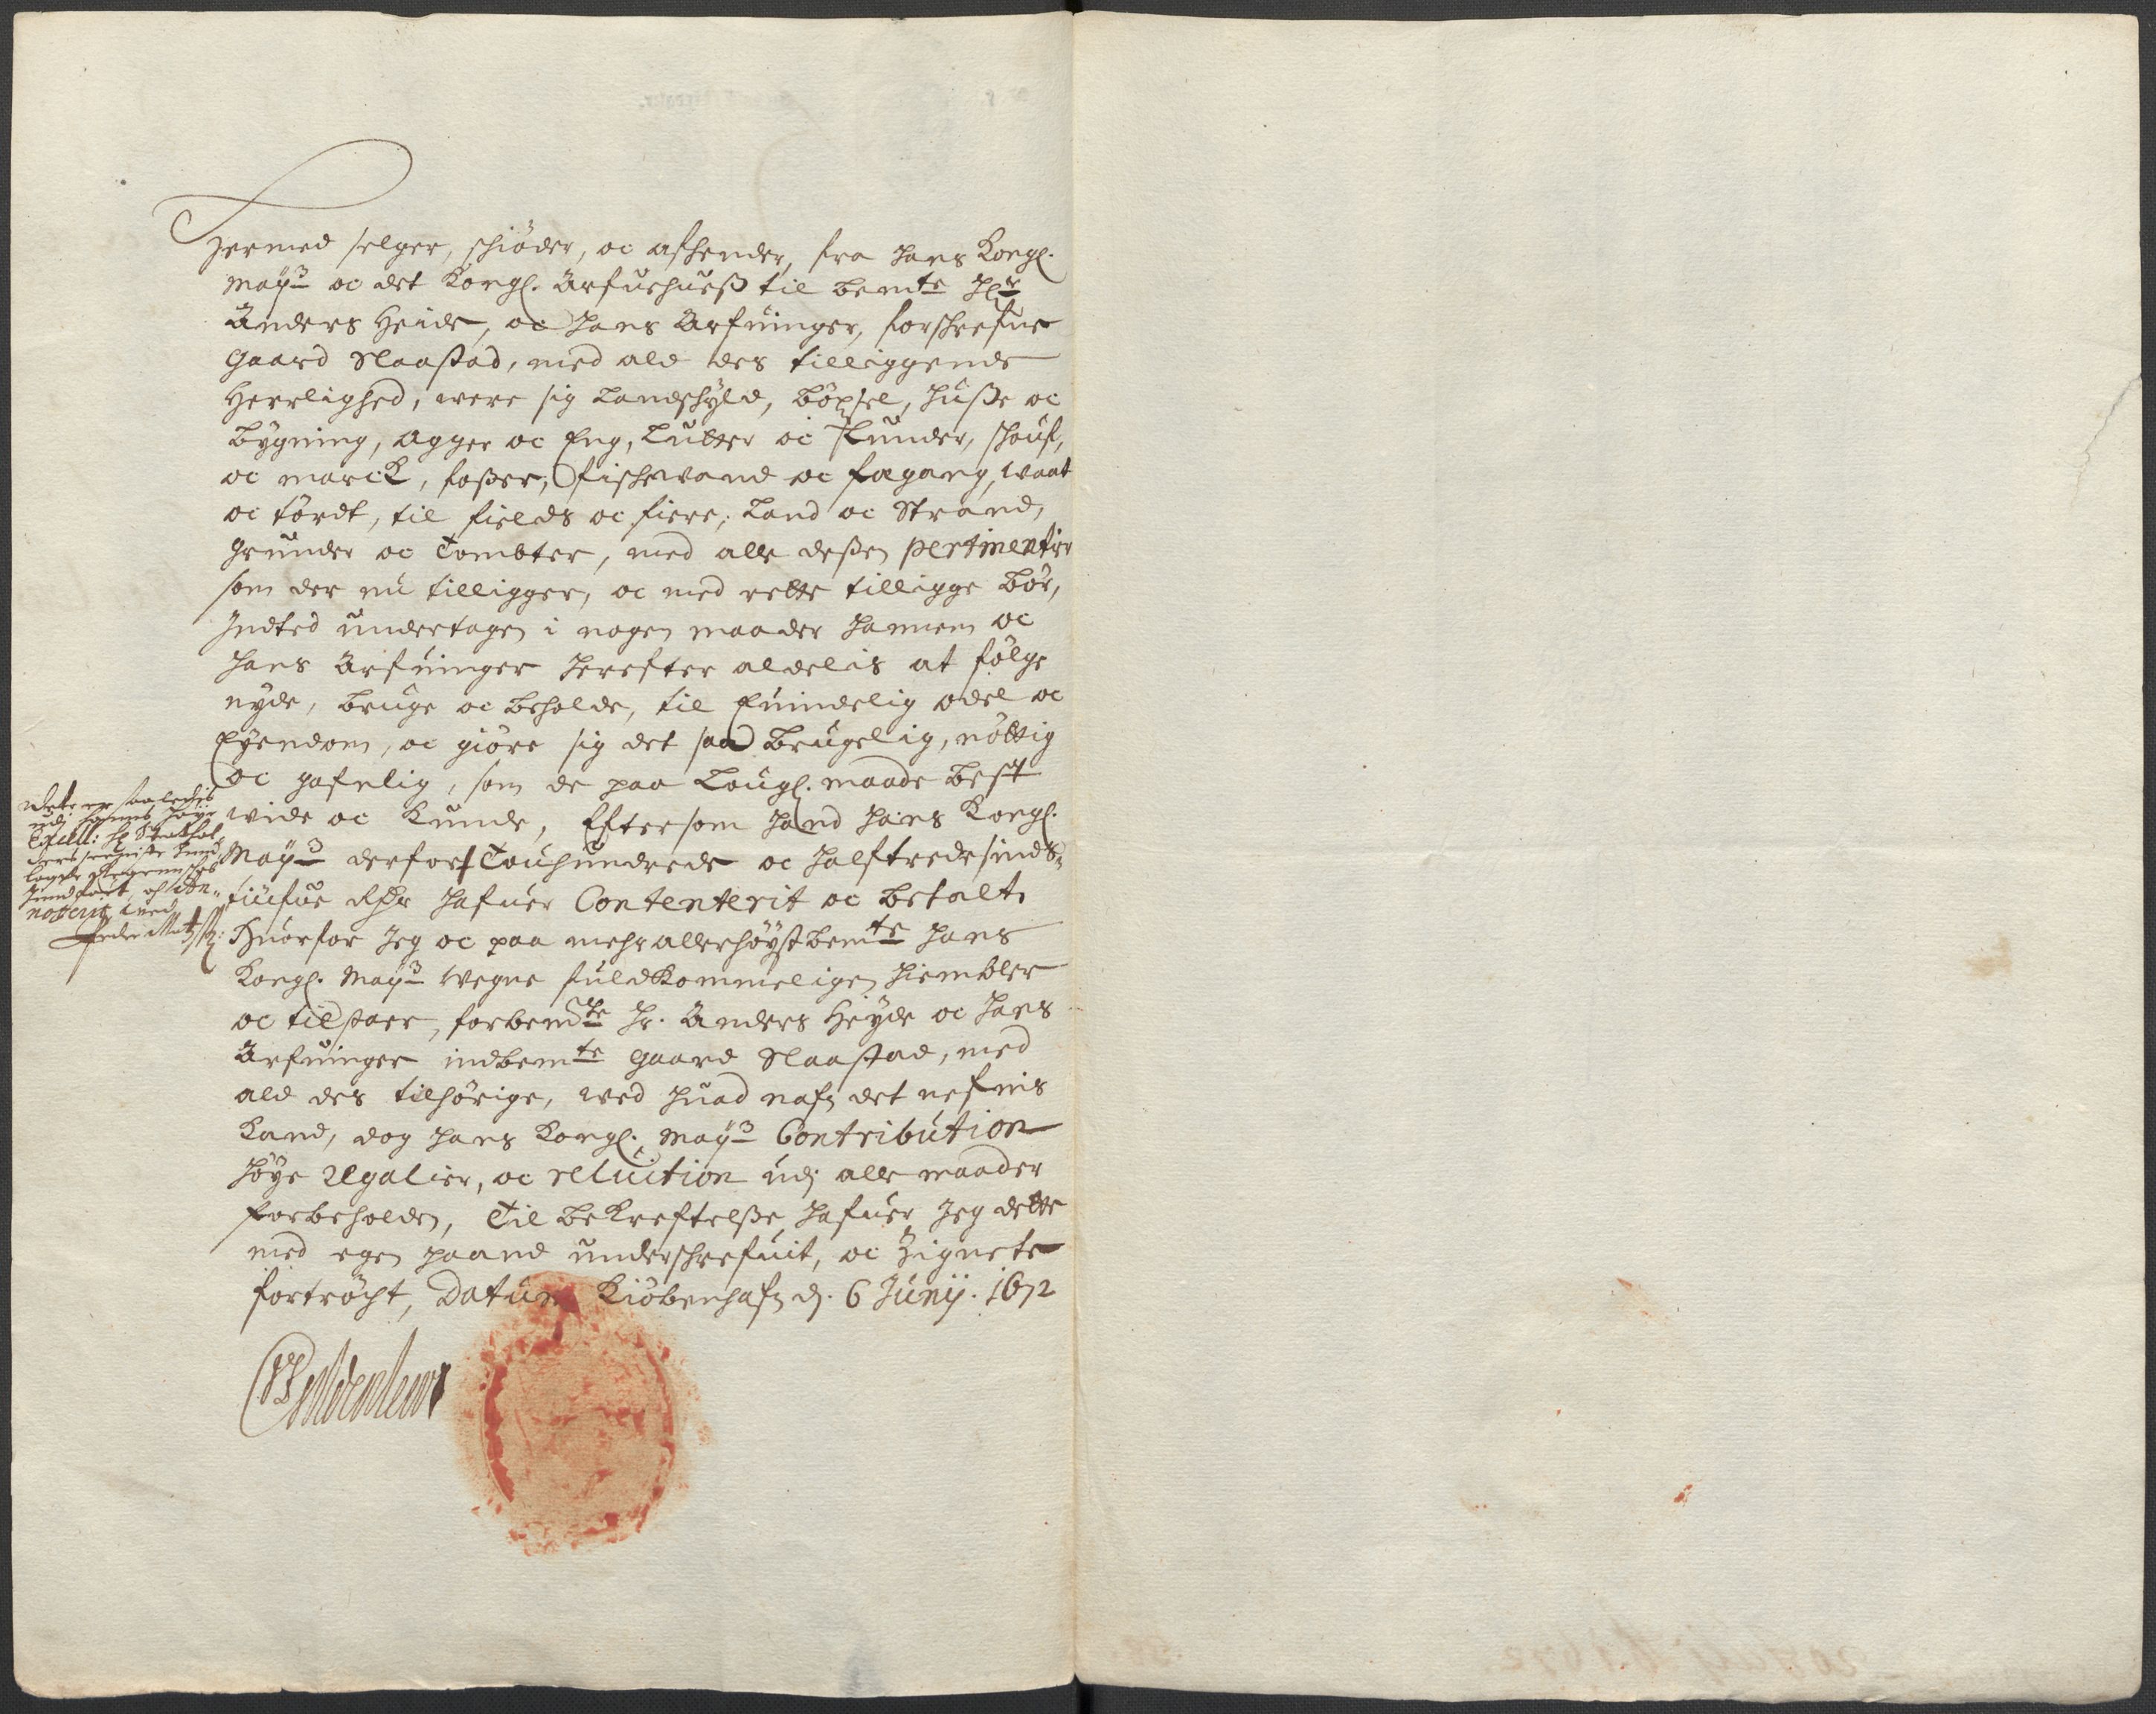 Hermed selger, schiöder, oc afhender, fra Hans Kongl.
Mayᵗ oc det Kongl. Arfuehuuß til bemte Hr
Anders Heide, oc Hans Arfuinger, forschrefne
Gaard Slaastad, med ald des tilliggende
Herlighed, were sig Landschyld, böxsel, Huße oc
bygning, Agger oc Eng, Lutter oc Lunder, schouf,
oc marck, foßer, fischevand oc fægang, waat
oc tördt, til fields oc fiere, Land oc Strand,
grunder oc Tombter, med alle deßen pertinentier
som der nu tilligger, oc med rette tilligge bör,
Indted undertagen i nogen maader Hannem oc
Hans Arfuinger Herefter aldelis at fölge
nyde, bruge oc beholde, til Euindelig odel oc
Eyendom, oc giöre sig det saa brugelig, nöttig
oc gafnlig, som de paa Lougl. maade best
wide oc Kunde, Eftersom Hand Hans Kongl.
Mayᵗ derfor Touhundrede oc Halftredesinds-
tiufue Rdr Hafuer Contenterit oc betalt,
Huorfor Jeg oc paa mehr allerhöystbemte Hans
Kongl. Mayᵗ wegne fuldkommeligen Hiembler
oc tilstaar, forbemte Hr. Anders Heyde oc Hans
Arfuinger indbemte Gaard Slaastad, med
ald des tilhörige, wed Huad nafn det nefnis
Kand, dog Hans Kongl. Mayᵗ Contribution
Höye Regalier, oc reluition udj alle maader
forbeholden, Til bekreftelße Hafuer Jeg dette
med egen Haand underschrefuit, oc Zignete
fortröcht, Datum Kiöbenhafn dj. 6 Junij. 1672
Dette er saaledis
udj hannes höye
Excell: Hr Stathol
ders
noterit, med
Peder
UFGuldenlew